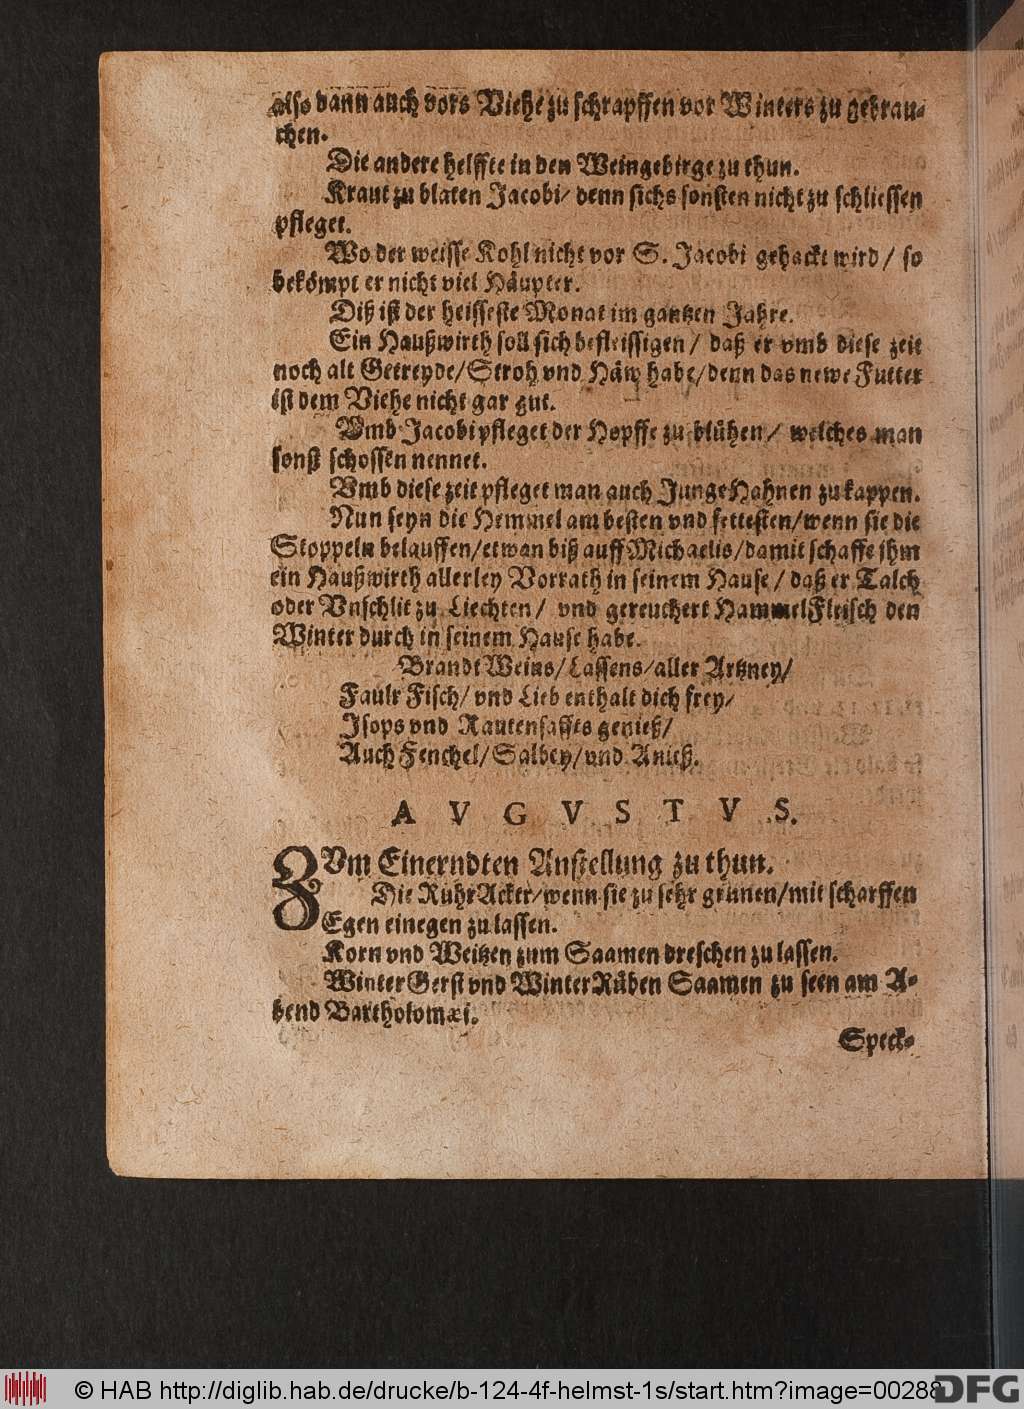 also dann auch vors Viehe zu schrapffen vor Winters zu gebrau-
chen.
Die andere helffte in den Weingebirge zu thun.
Kraut zu blaten Jacobi/ denn sichs sonsten nicht zu schliessen
pfleget.
Wo der weisse Kohl nicht vor S. Jacobi gehackt wird/ so
bekömpt er nicht viel Häupter.
Diß ist der heisseste Monat im gantzen Jahre.
Ein Haußwirth soll sich befleissigen/ daß er vmb diese zeit
noch alt Getreyde/Stroh vnd Häw habe/denn das newe Futter
ist dem Viehe nicht gar gut.
Vmb Jacobi pfleget der Hopffe zu blühen/ welches man
sonst schossen nennet.
Vmb diese zeit pfleget man auch Junge Hahnen zu kappen.
Nun seyn die Hemmel am besten vnd fettesten/wenn sie die
Stoppeln belauffen/etwan biß auff Michaelis/damit schaffe ihm
ein Haußwirth allerley Vorrath in seinem Hause/ daß er Talch
oder Vnschlit zu Liechten/ vnd gereuchert HammelFleisch den
Winter durch in seinem Hause habe.
Brandt Weins/ Lassens/ aller Artzney/
Faulr Fisch/ vnd Lieb enthalt dich frey/
Isops vnd Rautensaffts genieß/
Auch Fenchel/ Salbey/ vnd Anieß.
AVGVSTVS.
ZVm Einerndten Anstellung zu thun.
Die RuhrAcker/wenn sie zu sehr grunen/mit scharffen
Egen einegen zu lassen.
Korn vnd Weitzen zum Saamen dreschen zu lassen.
WinterGerst vnd WinterRüben Saamen zu seen am A-
bend Bartholomæi.
Speck-
© HAB http://diglib.hab.de/drucke/b-124-4f-helmst-1s/start.htm?image=00288
DFG